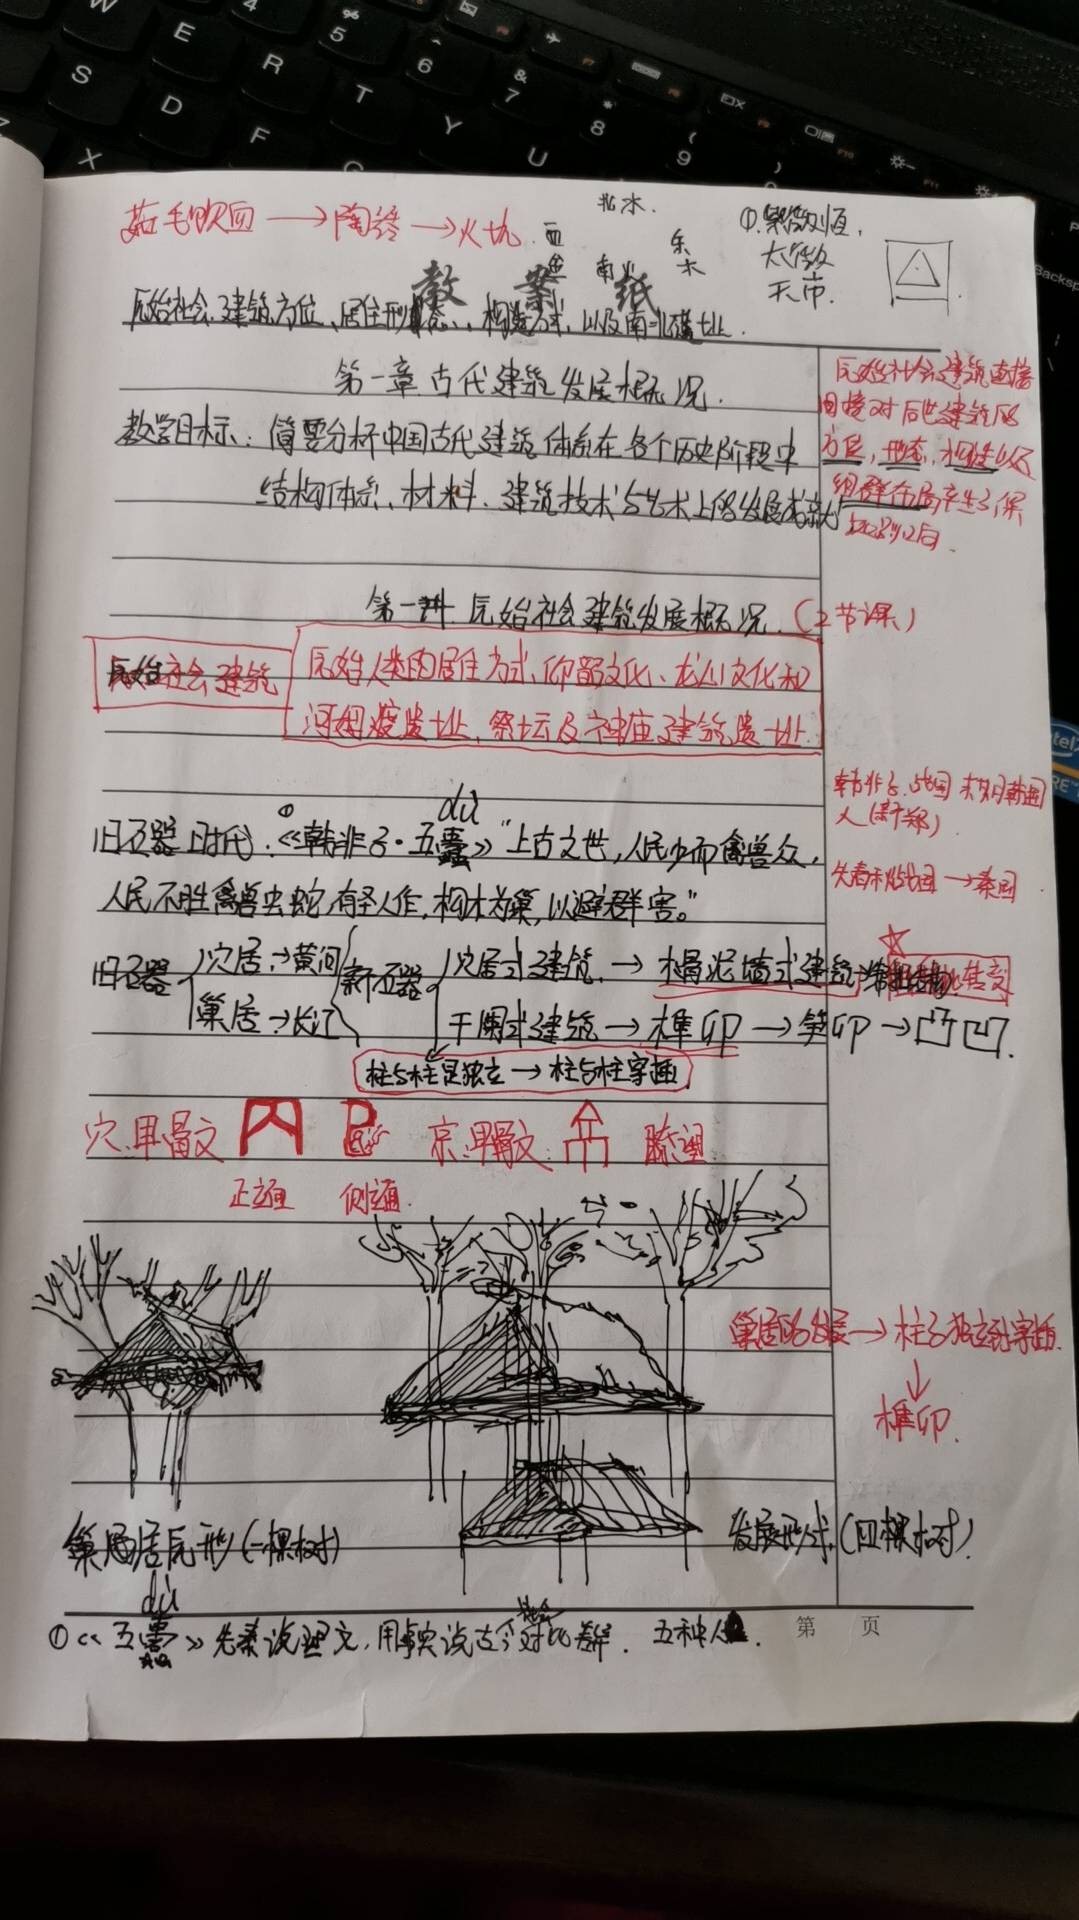 茹毛饮血 → 陶器 → 火坑
北水.
西金
南火
东木
①.紫微垣,
太微
天市.
教 案 纸
原始社会建筑方位、居住形态、构造方式,以及南北遗址.
第一章 古代建筑发展概况.
教学目标: 简要分析中国古代建筑体系在各个历史阶段中
结构体系、材料、建筑技术与艺术上的发展成就
原始社会建筑直接
间接对后世建筑的
方位,形态,构造以及
组群布局产生了深
第一讲 原始社会建筑发展概况.(2节课)
原始社会建筑
原始人类的居住方式、仰韶文化、龙山文化和
河姆渡遗址、祭坛及神庙建筑遗址.
韩非子.战国末期韩国
人(新郑).
先春秋战国 → 秦国
dù
旧石器时代:①《韩非子·五蠹》"上古之世,人民少而禽兽众,
人民不胜禽兽虫蛇,有圣人作,构木为巢,以避群害。"
旧石器 穴居→黄河 新石器 穴居式建筑 → 木骨泥墙式建筑
巢居→长江 干阑式建筑 → 榫卯 → 笋卯 → 凸凹.
柱与柱是独立 → 柱与柱穿插
穴:甲骨文 京:甲骨文:
正立面 侧立面.
巢居的发展 → 柱子独立到穿插.
↓
榫卯.
巢居原形(一棵树)
发展形式.(四棵树)
第 页
dù
①《五蠹》先秦说理文,用事实说古今社会对比差异. 五种人